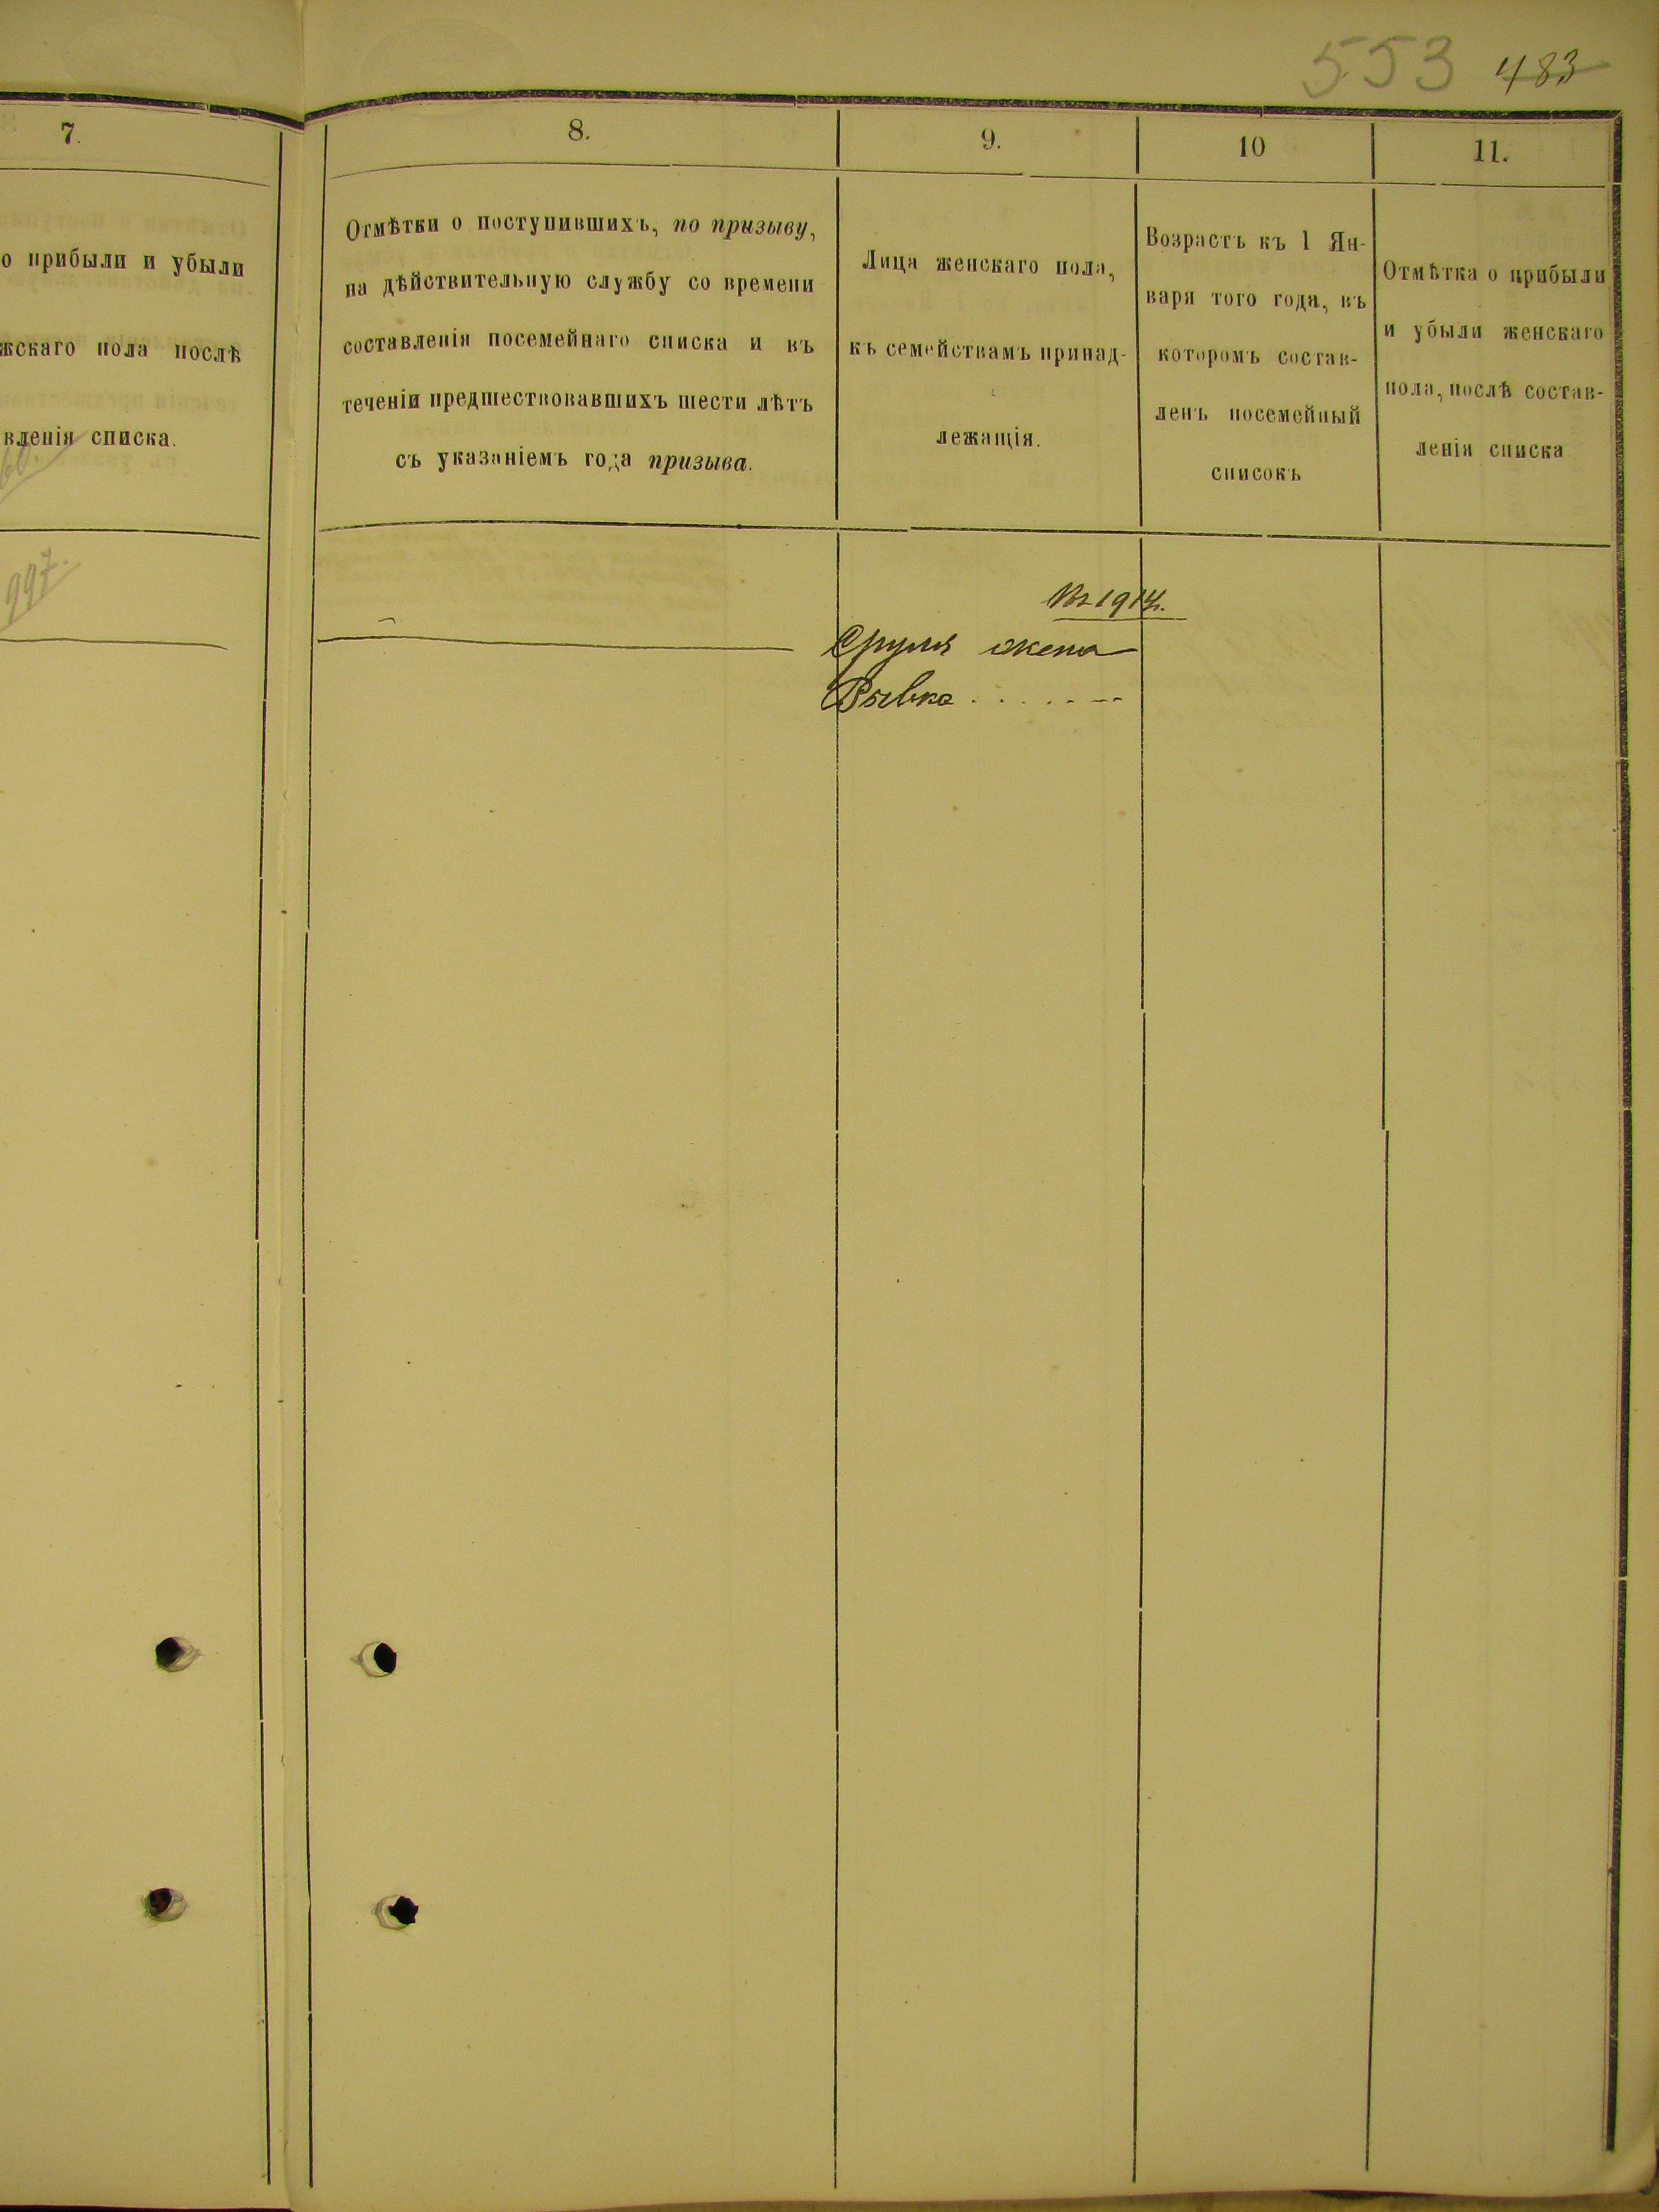 553 483
7.
о прибыли и убыли
жскаго пола послѣ
вленія списка.
60.
997.
8.
Отмѣтки о поступившихъ, по призыву,
на дѣйствительную службу со времени
составленія посемейнаго списка и въ
теченіи предшествовавшихъ шести лѣтъ
съ указаніемъ года призыва.
9.
Лица женскаго пола,
къ семействамъ принад-
лежащія.
10
Возрастъ къ 1 Ян-
варя того года, въ
которомъ состав-
ленъ посемейный
списокъ
11.
Отмѣтка о прибыли
и убыли женскаго
пола, послѣ состав-
ленія списка
Въ 1914г.
Сруля жена
Рывка